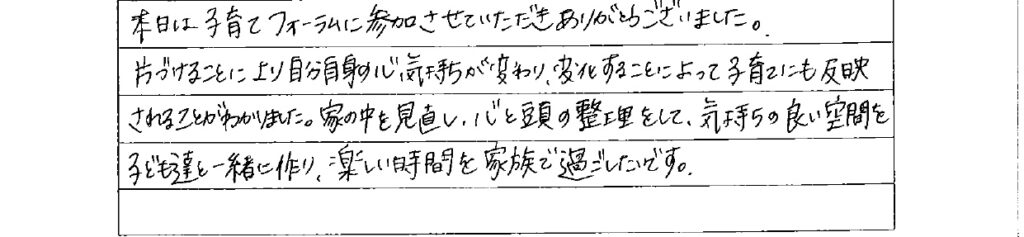 本日は子育てフォーラムに参加させていただきありがとうございました。
片づけることにより自分自身の心、気持ちが変わり、変化することによって子育てにも反映
されることがわかりました。家の中を見直し、心と頭の整理をして、気持ちの良い空間を
子ども達と一緒に作り、楽しい時間を家族で過ごしたいです。